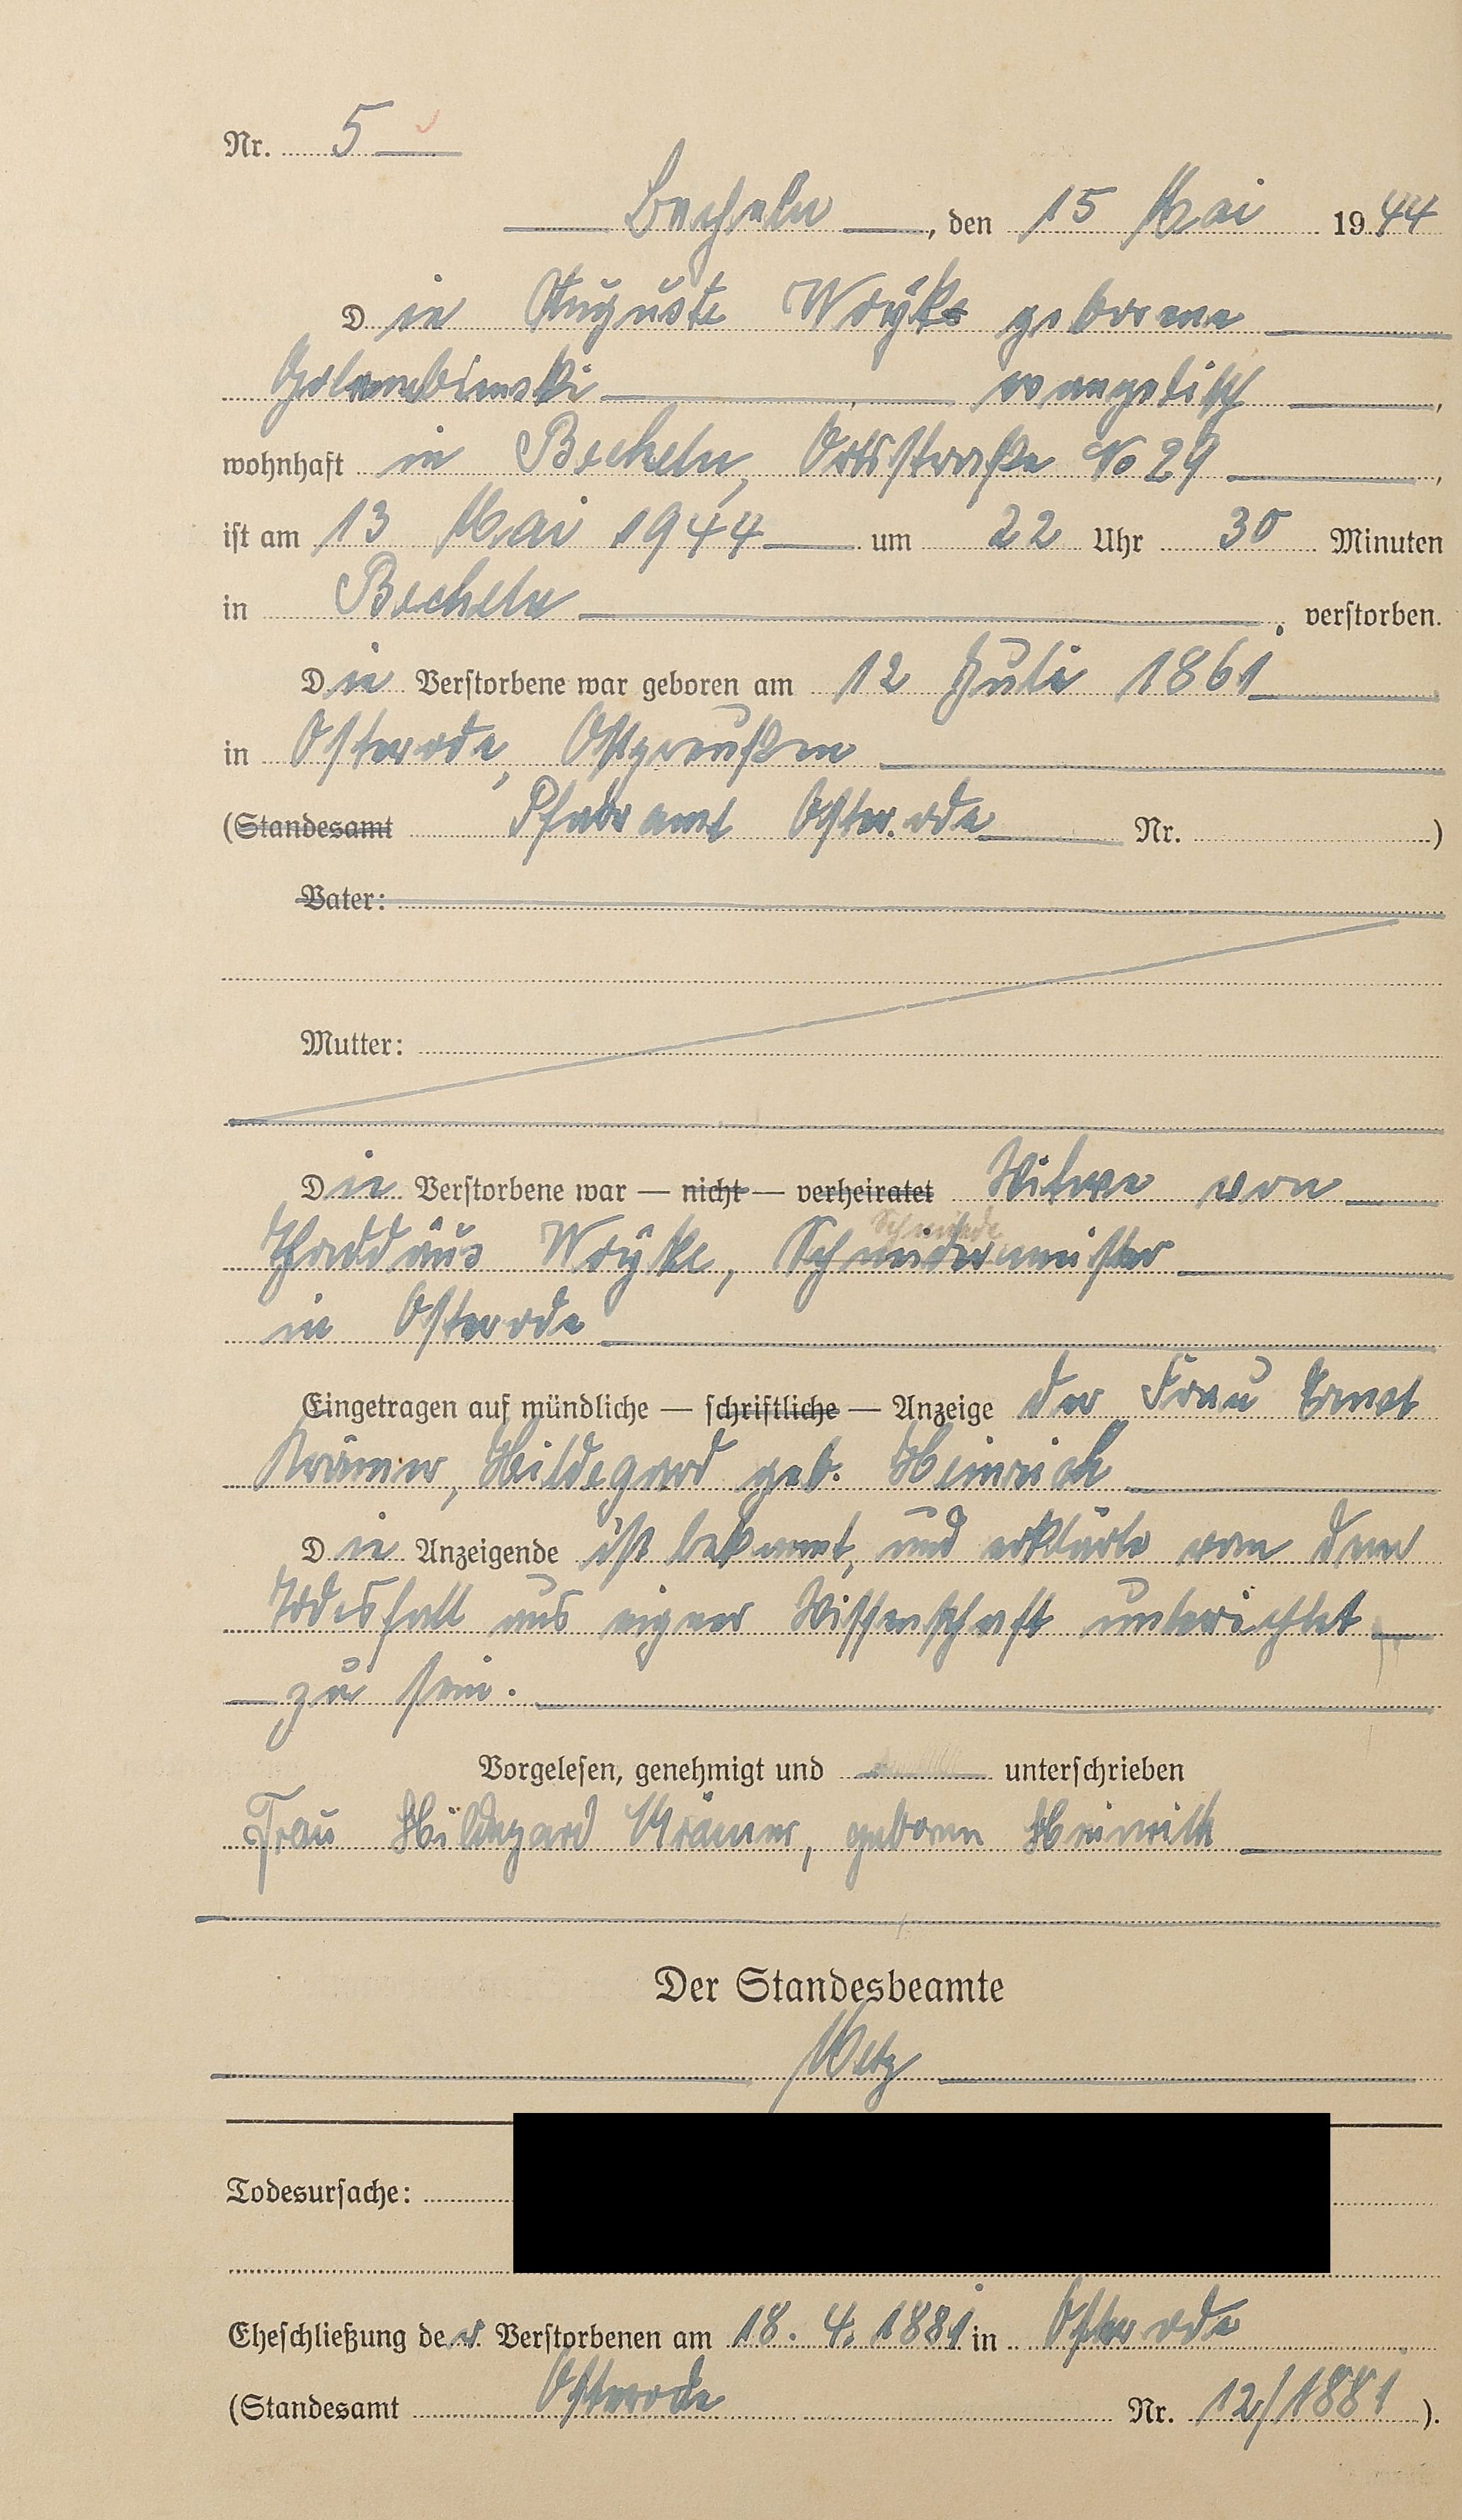 Nr. 5
Becheln, den 15 Mai 1944
Die Auguste Wrÿke geborene
Golembienski evangelisch,
wohnhaft in Becheln, Ortsstraße No 29,
ist am 13 Mai 1944 um 22 Uhr 30 Minuten
in Becheln, verstorben.
Die Verstorbene war geboren am 12 Juli 1861
in Osterode, Ostpreußen
(Standesamt Pfarramt Osterode Nr. )
Vater:
Mutter:
Die Verstorbene war — nicht — verheiratet Witwe von
Schmiede
Thaddäus Wrÿke, Schneidermeister
in Osterode
Eingetragen auf mündliche — schriftliche — Anzeige der Frau Ernst
Krämer, Hildegard geb. Heinrich
Die Anzeigende ist bekannt, und erklärte von dem
Todesfall aus eigner Wissenschaft unterichtet
zu sein.
Vorgelesen, genehmigt und unterschrieben
Frau Hildegard Krämer, geboren Heinrich
Der Standesbeamte
Metz
Todesursache:
Eheschließung der Verstorbenen am 18. 4. 1881 in Osterode
(Standesamt Osterode Nr. 12/1881).